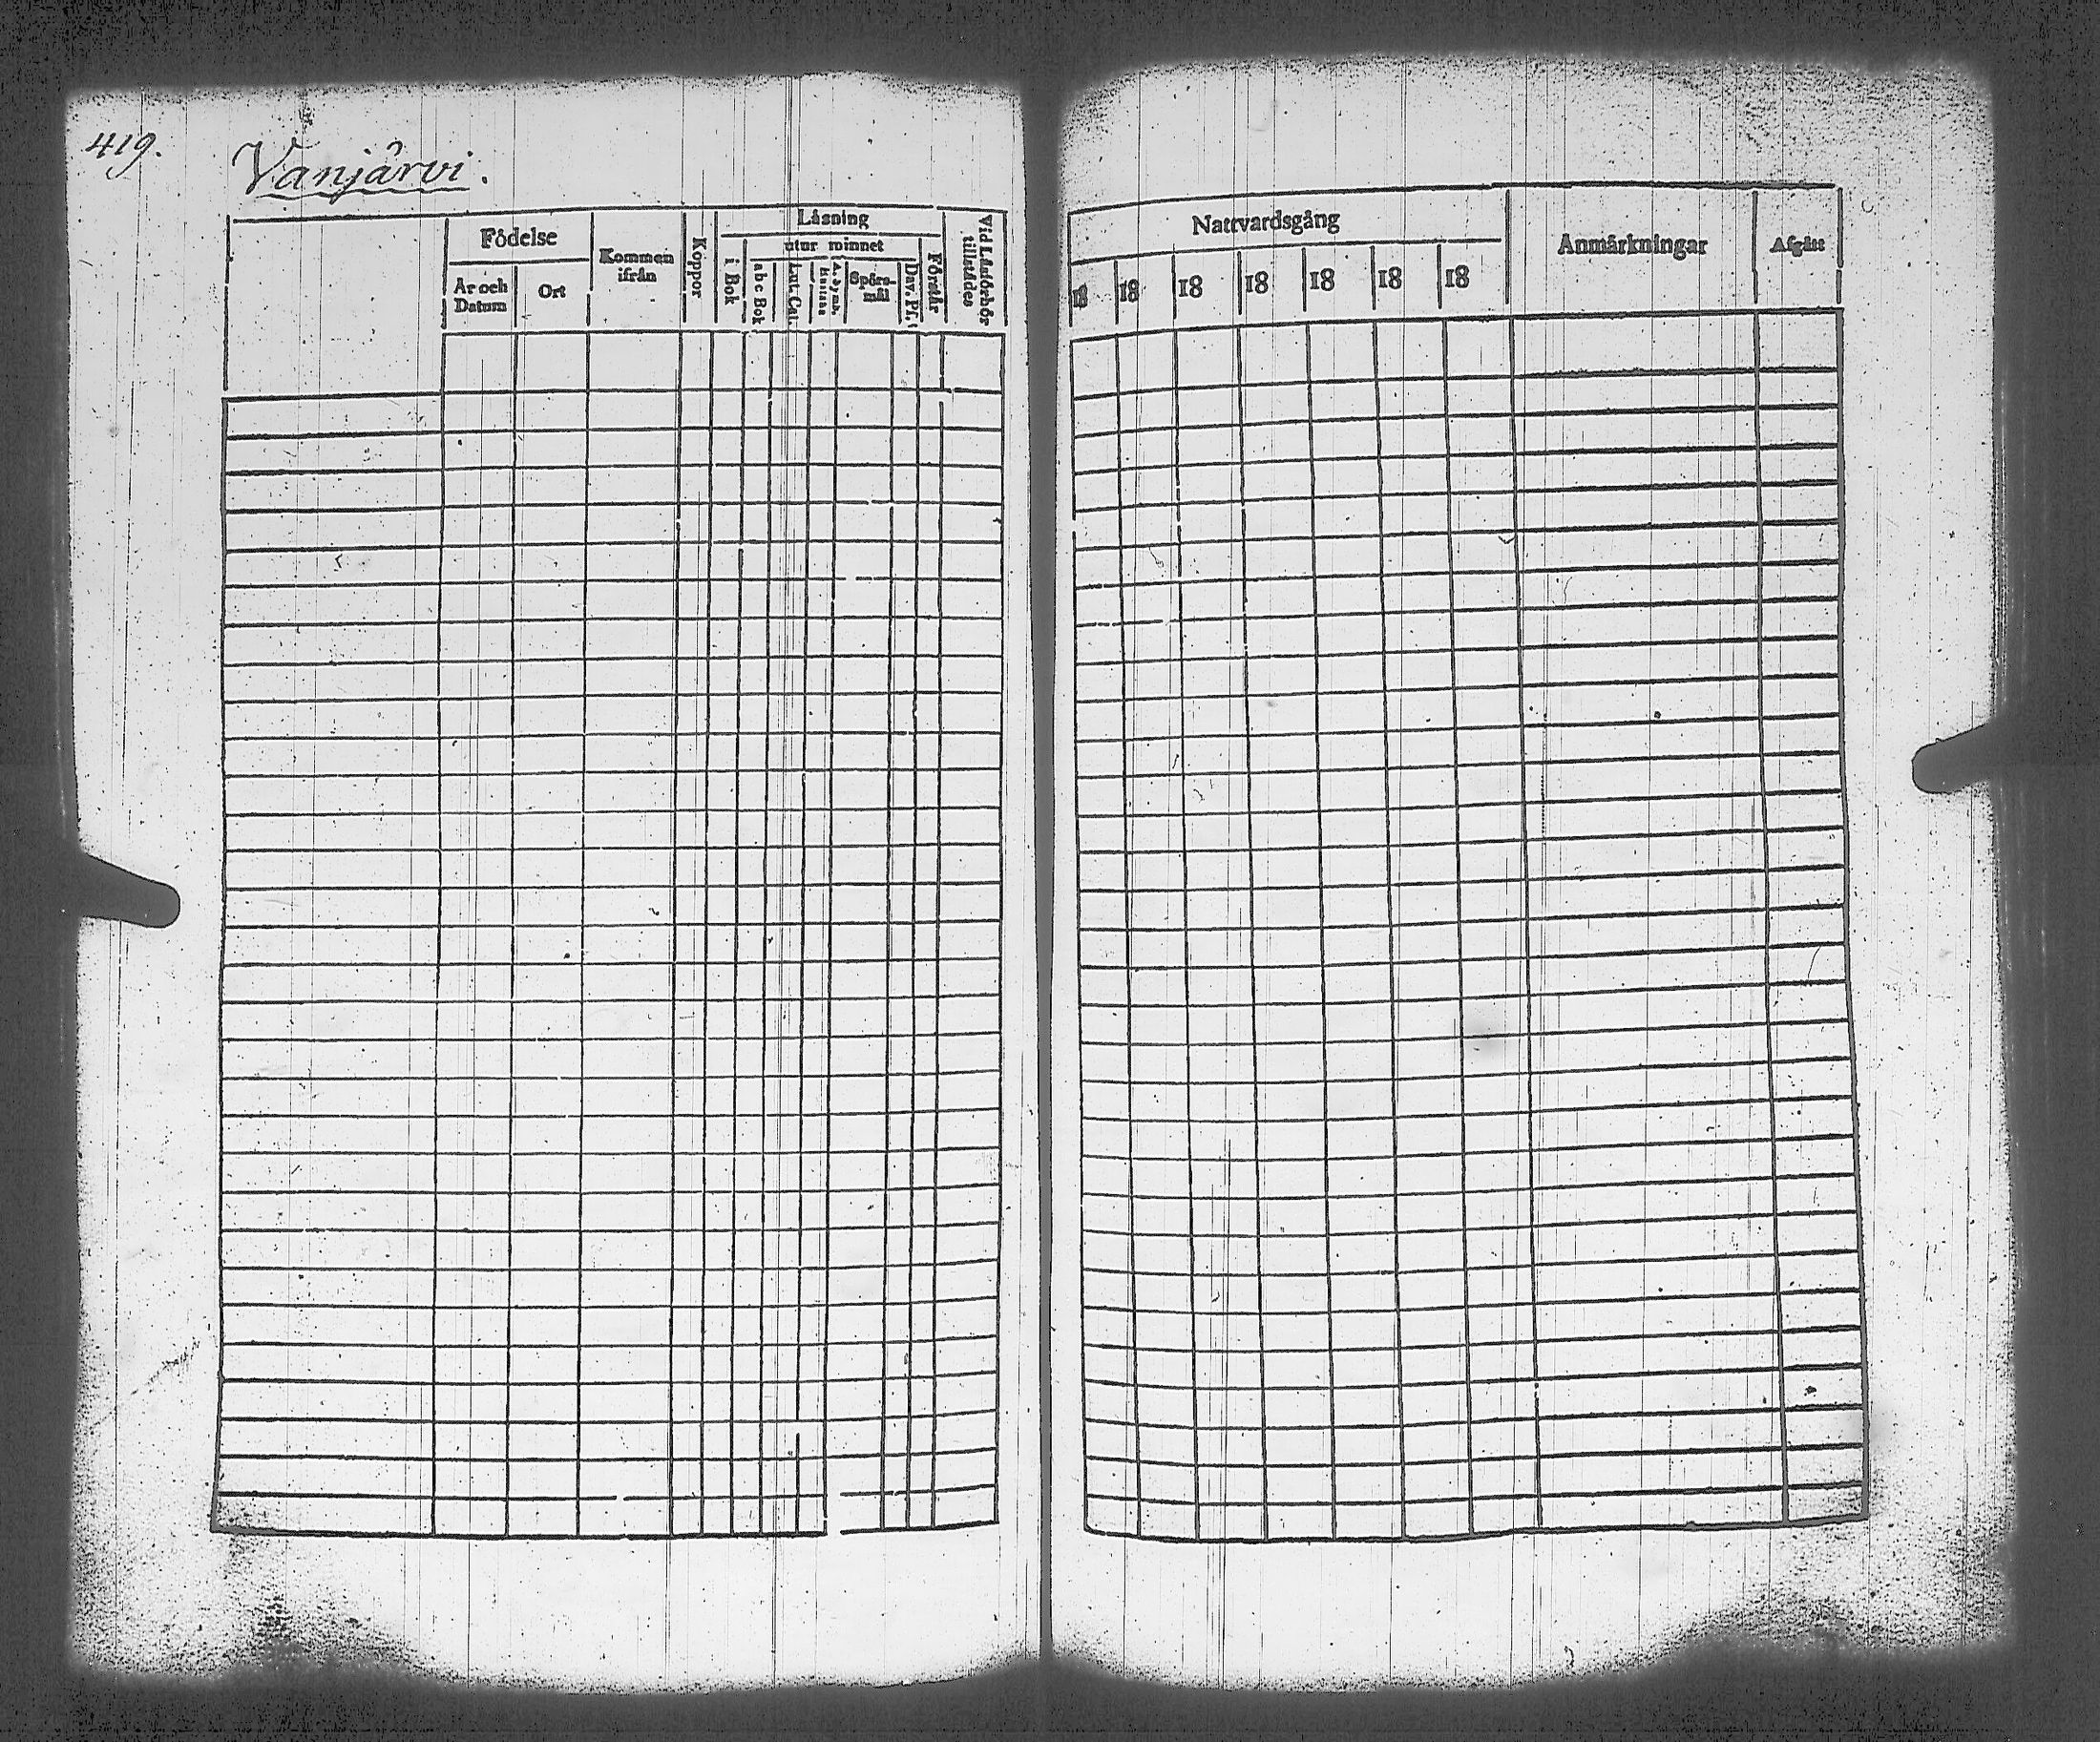 419.
Vanjärvi.
Födelse
År och
Datum
Ort
Kommen
ifrån
Koppor
Läsning
i Bok
utur minnet
abc Bok
Lut. Cat.
A. Symb.
Spörs-
mål
Dav. Ps.
Förstår
Vid Läsförhör
tillstädes
Nattvardsgång
18 18 18 18 18 18 18
Anmärkningar
Afgått